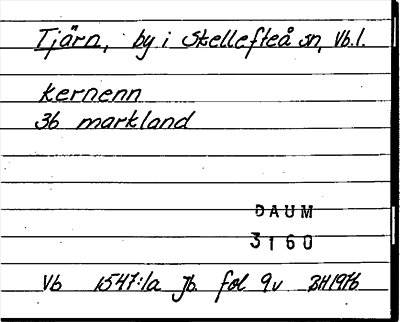 Tjärn, by i Skellefteå sn, Vb.l.
kernenn
36 markland
DAUM
3160
Vb 1547:1a Jb. fol 9v BH1976